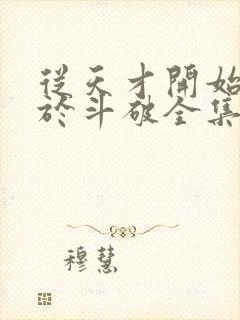 從天才開始
於斗破全集
穆慧